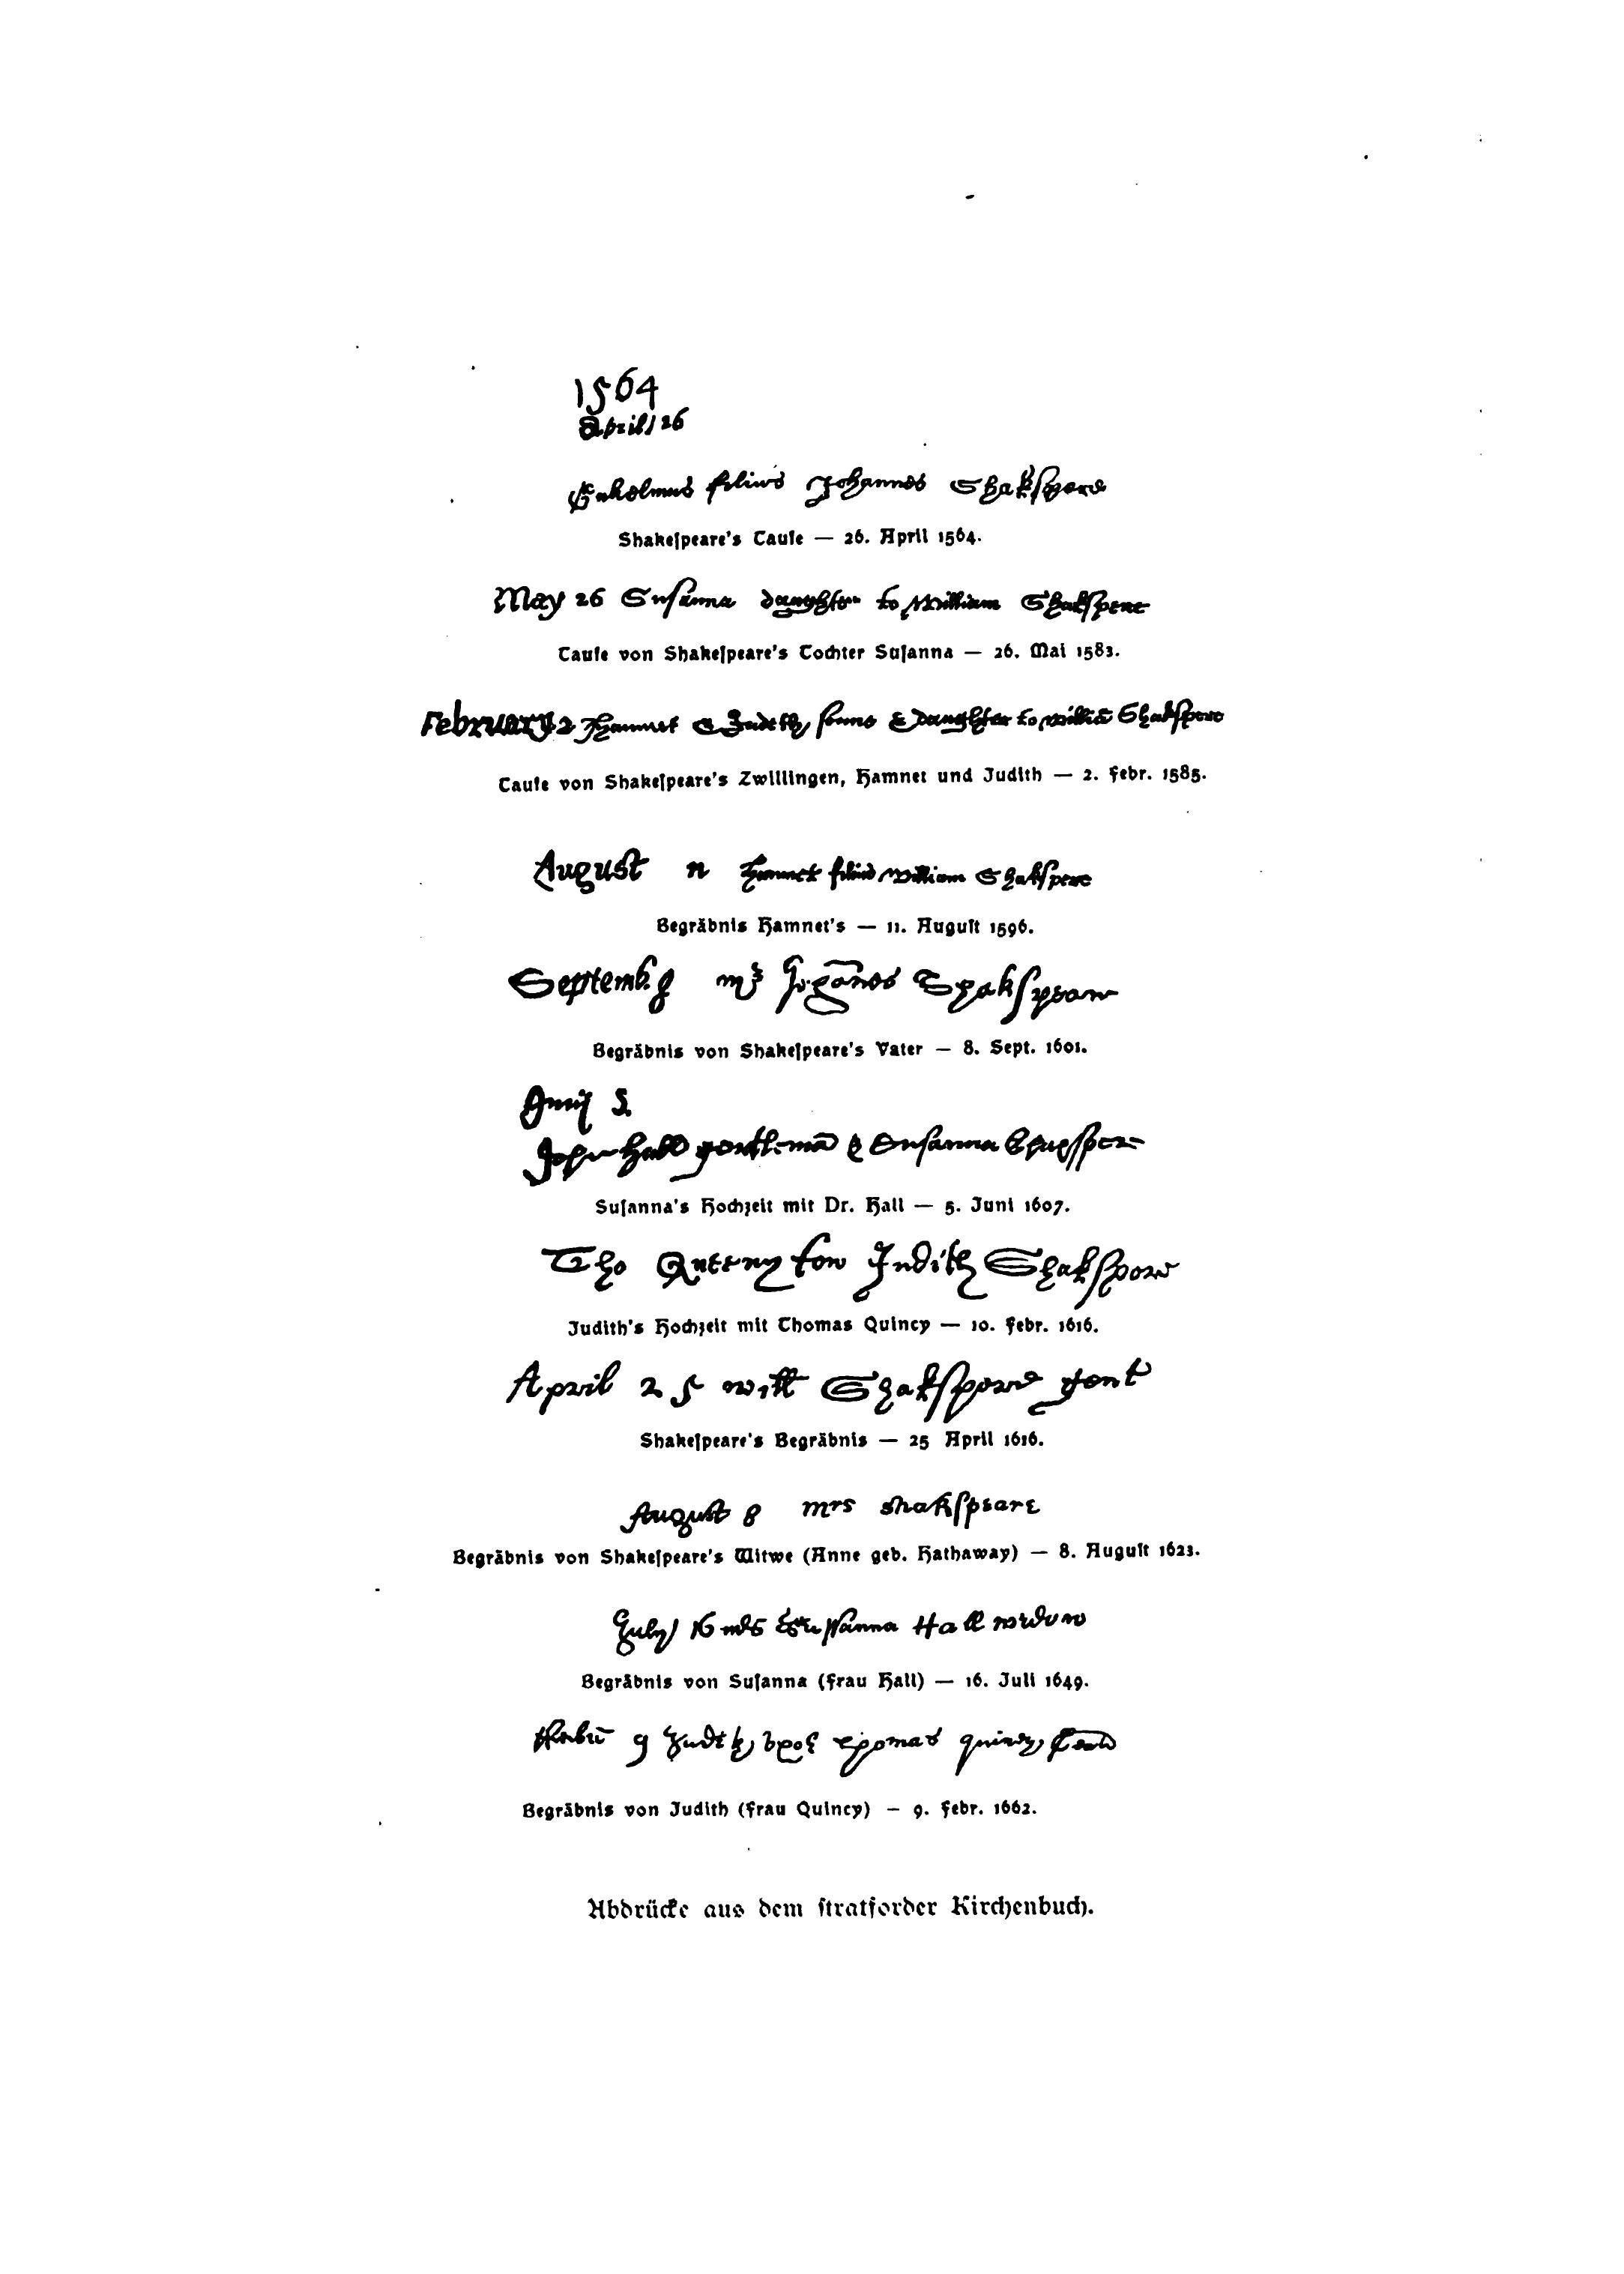 1564
April 26
Gulielmus filius Johannes Shakspere
Shakeſpeare's Taufe — 26. April 1564.
May 26 Susanna daughter to William Shakspere
Taufe von Shakeſpeare's Tochter Suſanna — 26. Mai 1583.
February 2 Hamnet & Judeth sonne & daughter to Williā Shakspere
Taufe von Shakeſpeare's Zwillingen, Hamnet und Judith — 2. Febr. 1585.
August 11 Hamnet filius William Shakspere
Begräbnis Hamnet's — 11. Auguſt 1596.
Septemb. 8 mr Johānes Shakspeare
Begräbnis von Shakeſpeare's Vater — 8. Sept. 1601.
Junij 5.
John Hall gentlemā & Susanna Shaxspere
Suſanna's Hochzeit mit Dr. Hall — 5. Juni 1607.
Tho Queeny tow Judith Shakspere
Judith's Hochzeit mit Thomas Quincy — 10. Febr. 1616.
April 25 will Shakspere gent
Shakeſpeare's Begräbnis — 25 April 1616.
August 8 mrs shakspeare
Begräbnis von Shakeſpeare's Witwe (Anne geb. Hathaway) — 8. Auguſt 1623.
July 16 mrs Hall widow
Begräbnis von Suſanna (Frau Hall) — 16. Juli 1649.
9 Judith Thomas quiney Gent
Begräbnis von Judith (Frau Quincy) — 9. Febr. 1662.
Abdrücke aus dem ſtratforder Kirchenbuch.